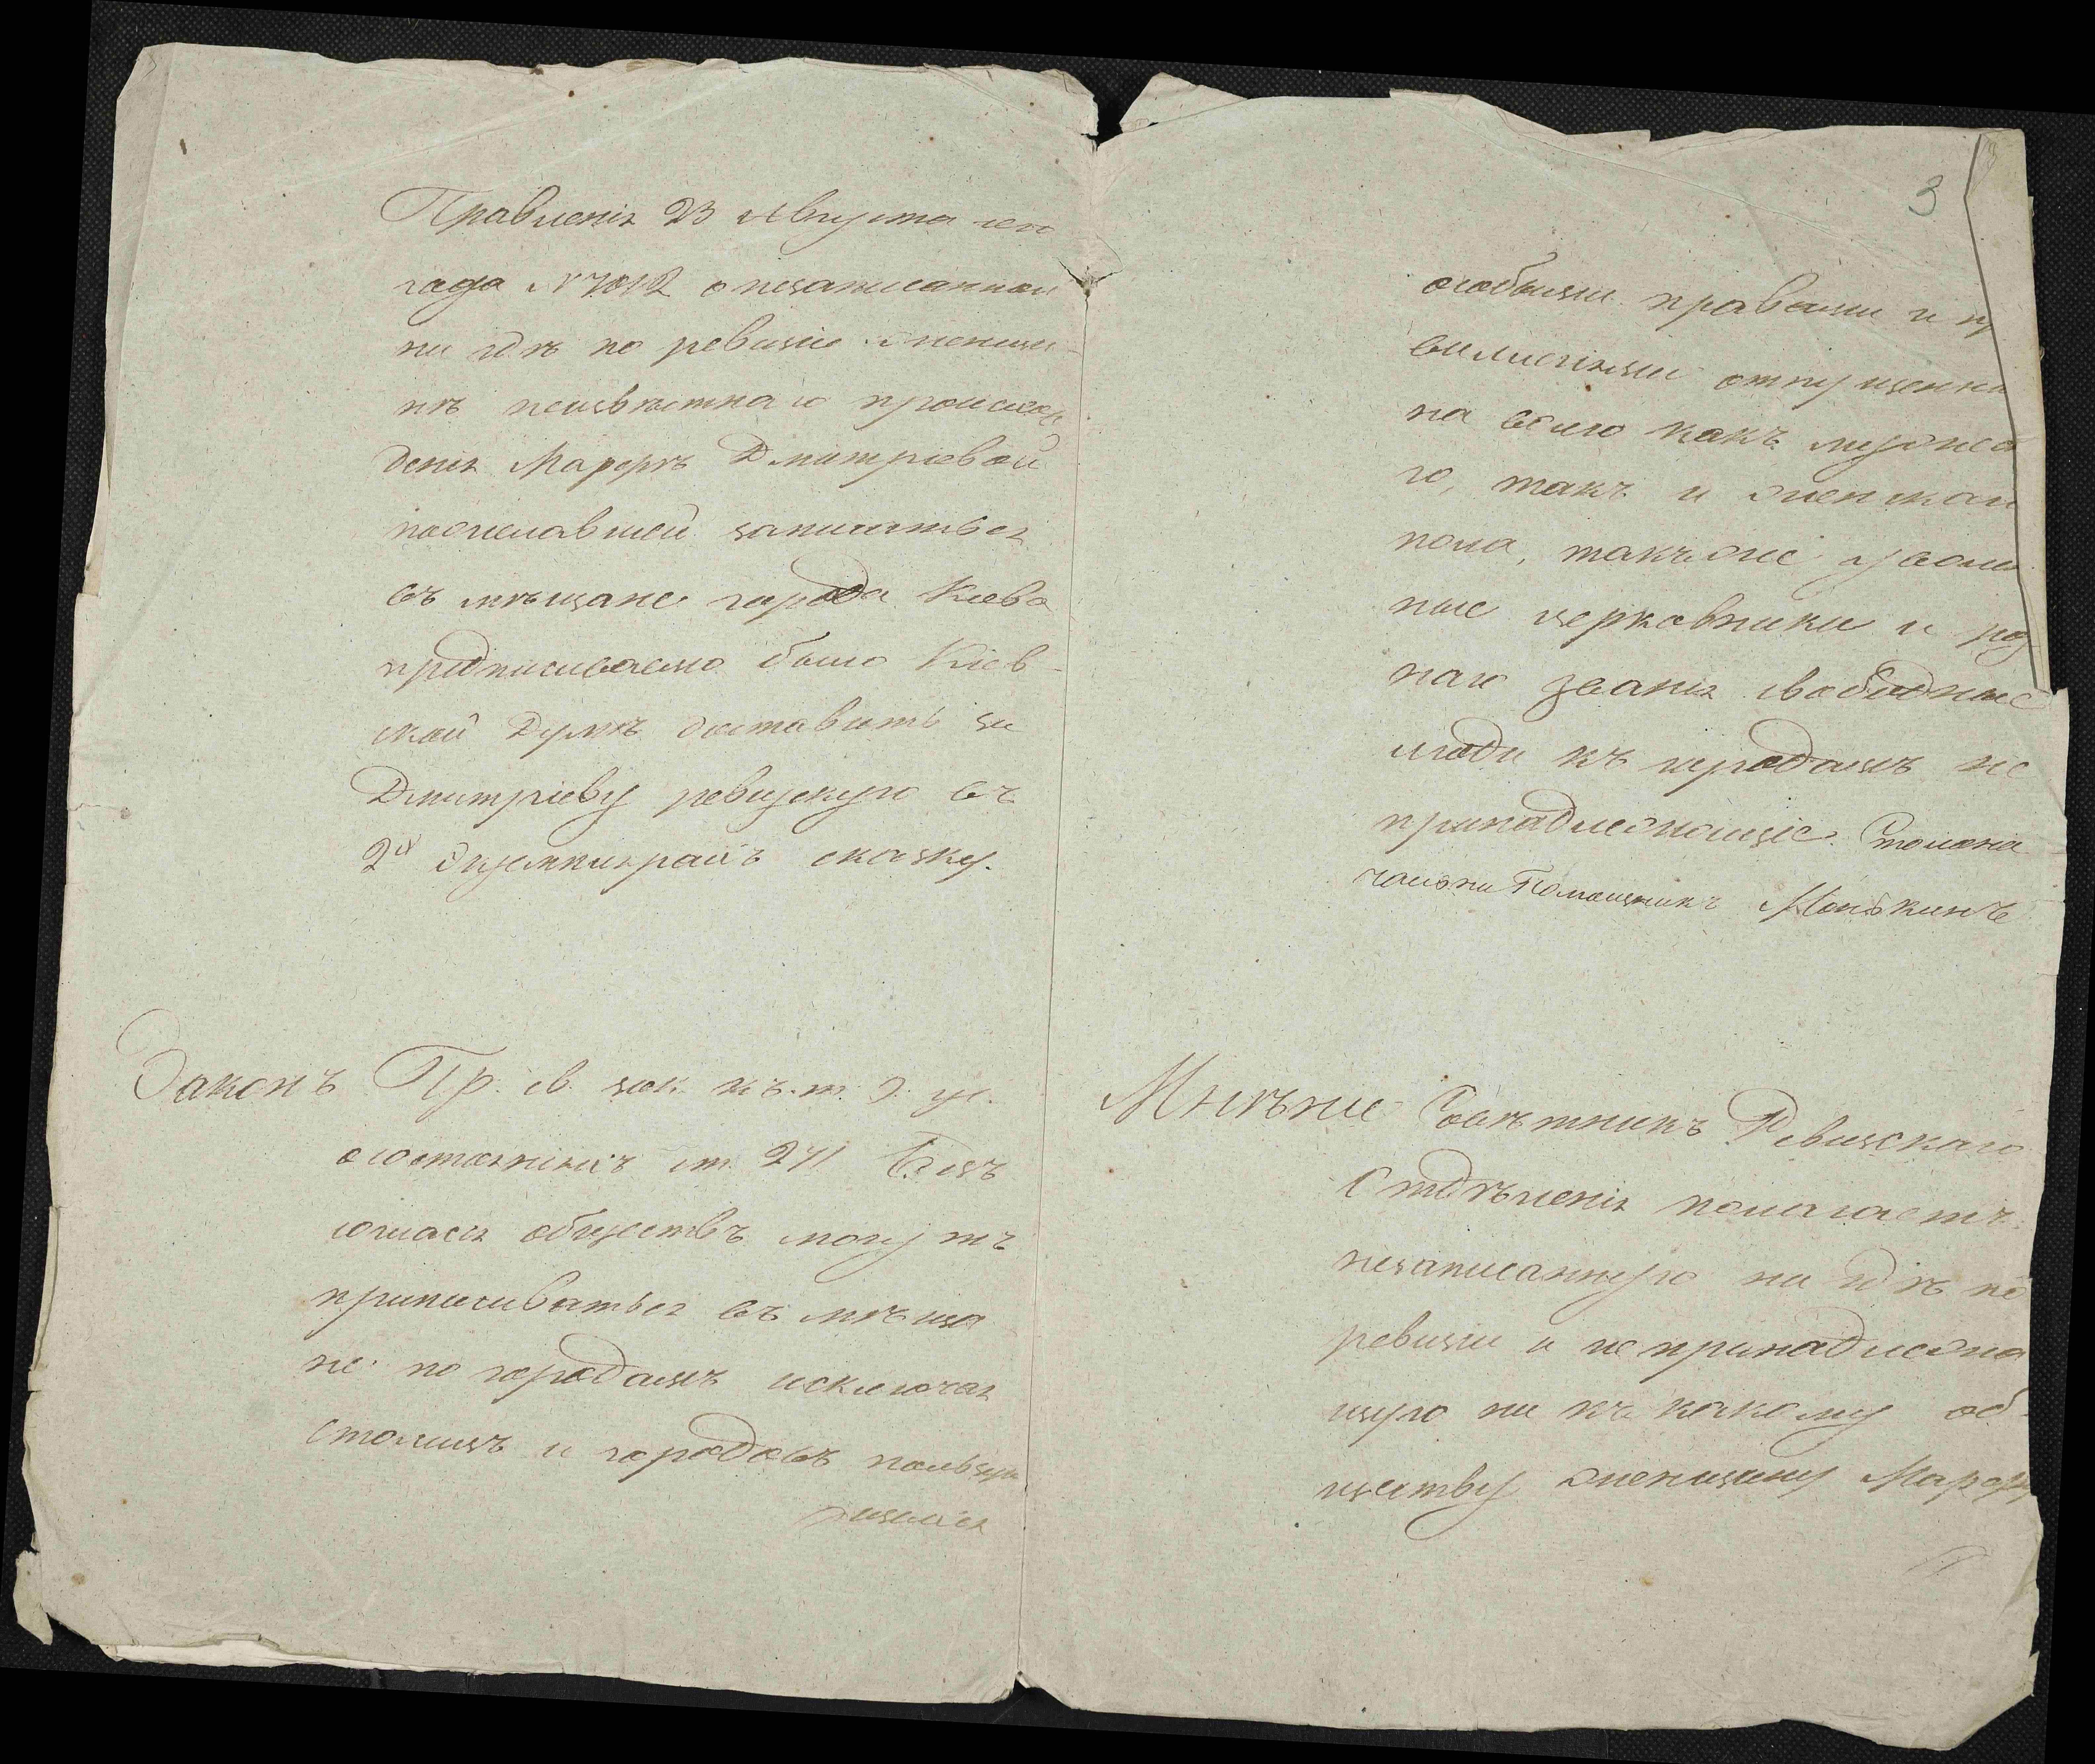 Правленія 23 Августа сего
года N 7012 о незаписанной
ни гдѣ по ревизіи женщи-
нѣ неизвѣстнаго происхож
денія Марфѣ Дмитріевой
пожелавшей записаться
въ мѣщане города Кіева
предписываемо было Кіев-
ской Думѣ доставить за
Дмитріеву ревизскую въ
2х экземплярахъ сказку.
Законъ Пр. св. зак. къ т. 9. ус.
о состояніяхъ ст. 271 Безъ
согласія обществъ могутъ
приписываться въ мѣща
не по городамъ исключая
столицъ и городовъ пользую
щихся
3
особыми правами и пр
вилегіями отпущенны
на волю какъ мужеска
го, такъ и женскаго
пола, такъже уволен
ные церковники и раз
наго званія свободные
люди къ городамъ не
принадлежащіе. Столона
чальника Помощникъ Монькинъ
Мнѣніе Совѣтникъ Ревизскаго
Отдѣленія полагаетъ:
незаписанную ни гдѣ по
ревизіи и не принадлежа
щую ни къ какому об
ществу женщину Марфу